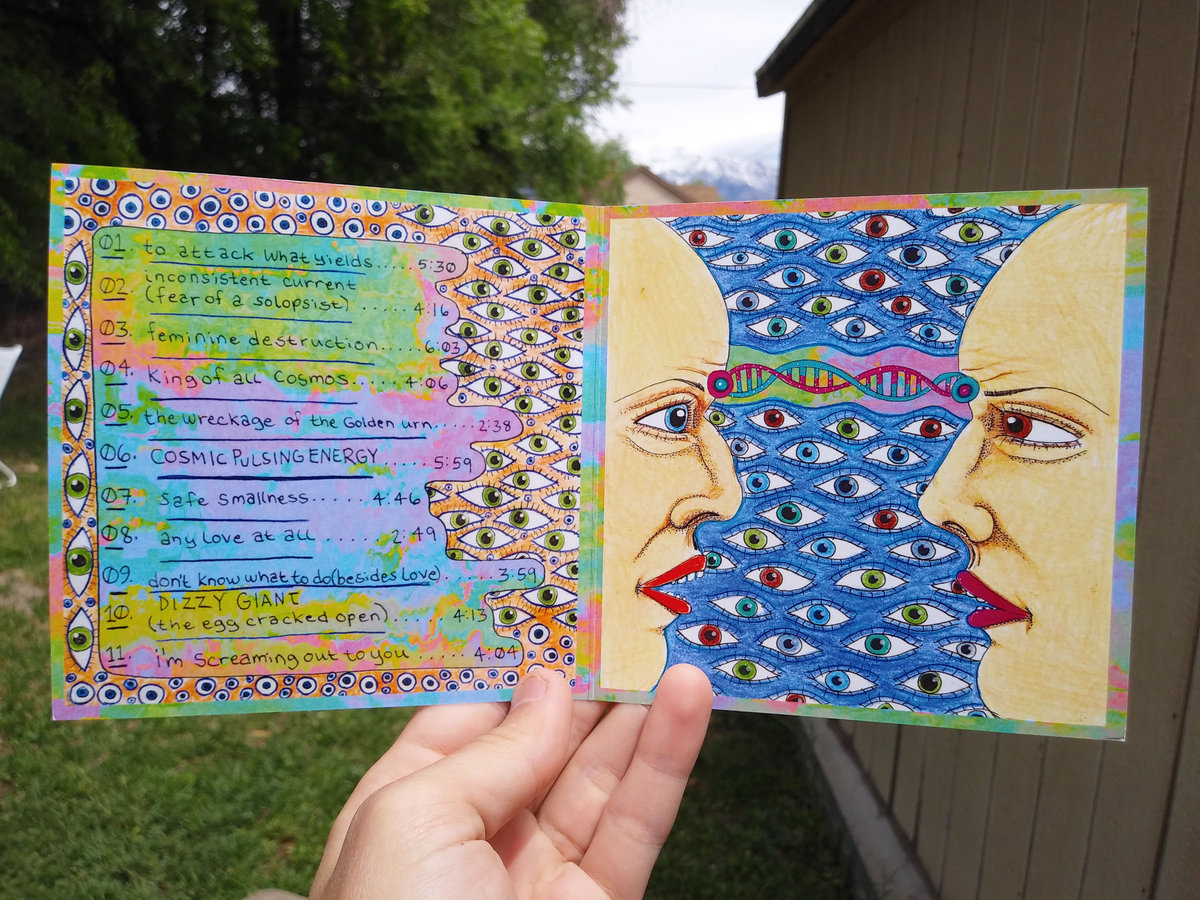 01 to attack what yields.....5:30
02. inconsistent current
(fear of a solopsist)......4:16
03. feminine destruction.....6:03
04. King of all Cosmos.....4:06
05. the wreckage of the Golden urn.....2:38
06. COSMIC PULSING ENERGY.....5:59
07. Safe smallness......4:46
08. any love at all.....2:49
09. don't know what to do(besides Love)......3:59
10. DIZZY GIANT
(the egg cracked open)......4:13
11. i'm screaming out to you......4:04